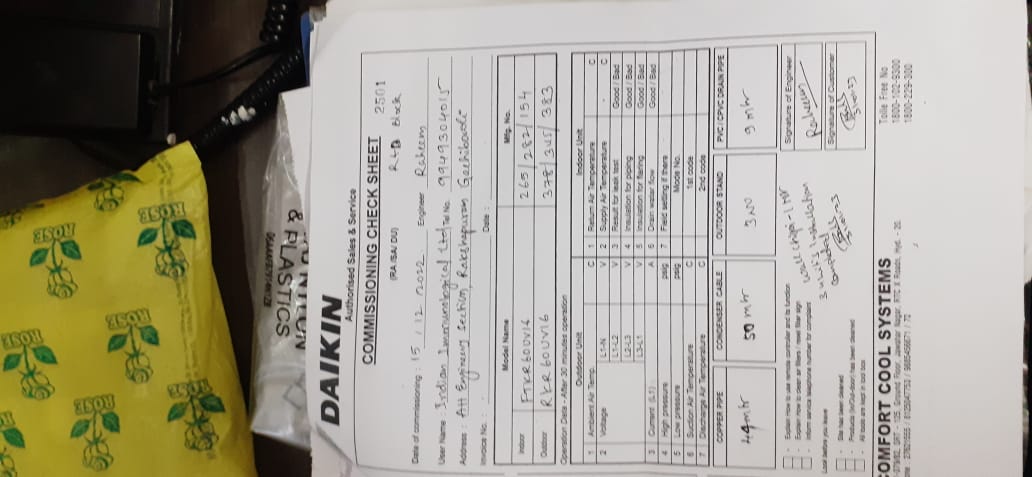 DAIKIN
Authorised Sales & Service
COMMISSIONING CHECK SHEET 2501
(RA /SA/ DU) R+D Block
Date of commissioning : 15 / 12 / 2022 Engineer Raheem
User Name : Indian Immunological Ltd Tel No. 9949304015
Address : Att Engineering Section, Rakshapuram Gachibowli
Invoice No. : Date :
Model Name Mfg. No.
Indoor FTKR60UV16 265/282/154
Outdoor RKR60UV16 378/345/383
Operation Data - After 30 minutes operation
Outdoor Unit Indoor Unit
1 Ambient Air Temp. C 1 Return Air Temperature C
2 Voltage L1-N V 2 Supply Air Temperature C
L1-L2 V 3 Result for leak test Good / Bad
L2-L3 V 4 Insulation for piping Good / Bad
L3-L1 V 5 Insulation for flaring Good / Bad
3 Current (L1) A 6 Drain water flow Good / Bad
4 High pressure psig 7 Field setting if there
5 Low pressure psig Mode No.
6 Suction Air Temperature C 1st code
7 Discharge Air Temperature C 2nd code
COPPER PIPE CONDENSER CABLE OUTDOOR STAND PVC / CPVC DRAIN PIPE
44 mtr 50 mtr 3 NO 9 mtr
- Explain How to use remote controller and its function
- Explain How to clean air filters / reset filter sign
- Inform service telephone number for complaint
Look before you leave
- Site has been cleaned
- Products (in/Out-door) has been cleaned
- All tools are kept in tool box
3 units installation
completed
Signature of Engineer
Raheem
Signature of Customer
COMFORT COOL SYSTEMS
Tolle Free No
1800-102-9300
1800-229-300
ROSE
ROSE
ROSE
ROSE
ROSE
ROSE
ROSE
& PLASTICS